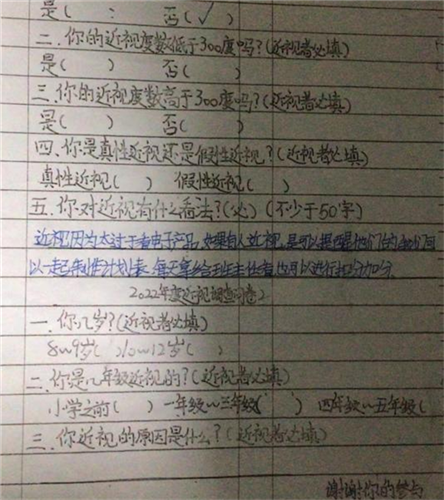 是(    )    否(√)
二、你的近视度数低于300度吗?(近视者必填)
是(    )    否(    )
三、你的近视度数高于300度吗?(近视者必填)
是(    )    否(    )
四、你是真性近视还是假性近视?(近视者必填)
真性近视(    )  假性近视(    )
五、你对近视有什么看法?(必)(不少于50字)
近视因为太过于看电子产品,如果有人近视,是可以提醒他们的,他们可
以一起制作计划表,每天拿给班主任查也可以进行扣分加分
2022年度近视调查问卷2
一、你几岁?(近视者必填)
8~9岁(    )10~12岁(    )
二、你是几年级近视的?(近视者必填)
小学之前(    )一年级~三年级(    )四年级~五年级(
三、你近视的原因是什么?(近视者必填)
谢谢你的参与